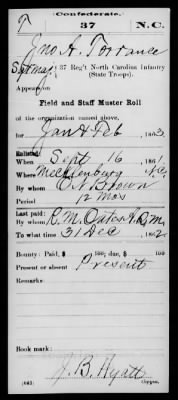 Confederate.
T 37 N.C.
Jno A. Torrance
Sgt Maj, 37 Reg't North Carolina Infantry
(State Troops).
Appears on
Field and Staff Muster Roll
of the organization named above,
for Jan & Feb, 1863.
Enlisted:
When Sept 16, 1861.
Where Mecklenburg N.C.
By whom C. N. Brown
Period 12 mos
Last paid:
By whom R. M. Oates A.Q.M.
To what time 31 Dec, 1862.
Bounty: Paid, $ 100; due, $ 100
Present or absent Present
Remarks:
Book mark:
J. B. Hyatt
(643) Copyist.